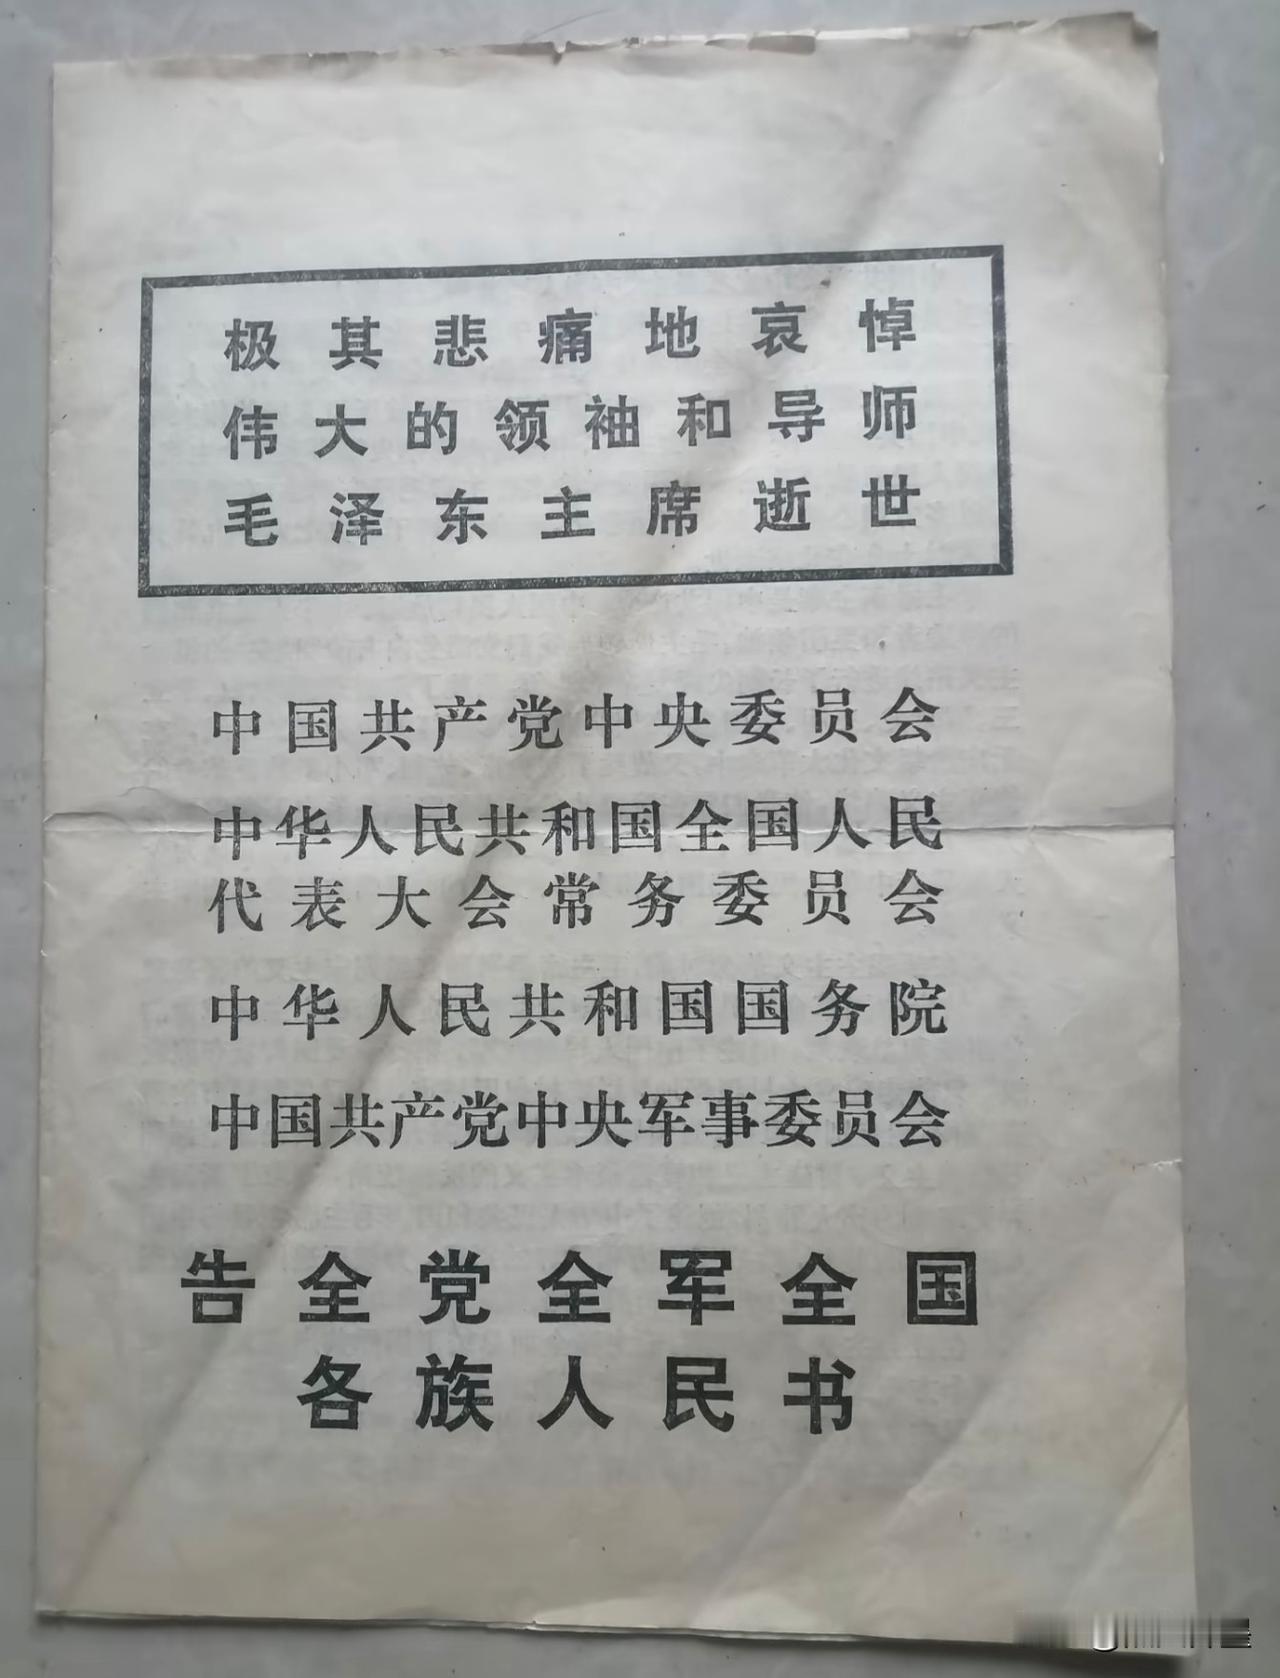 极其悲痛地哀悼
伟大的领袖和导师
毛泽东主席逝世
中国共产党中央委员会
中华人民共和国全国人民
代表大会常务委员会
中华人民共和国国务院
中国共产党中央军事委员会
告全党全军全国
各族人民书